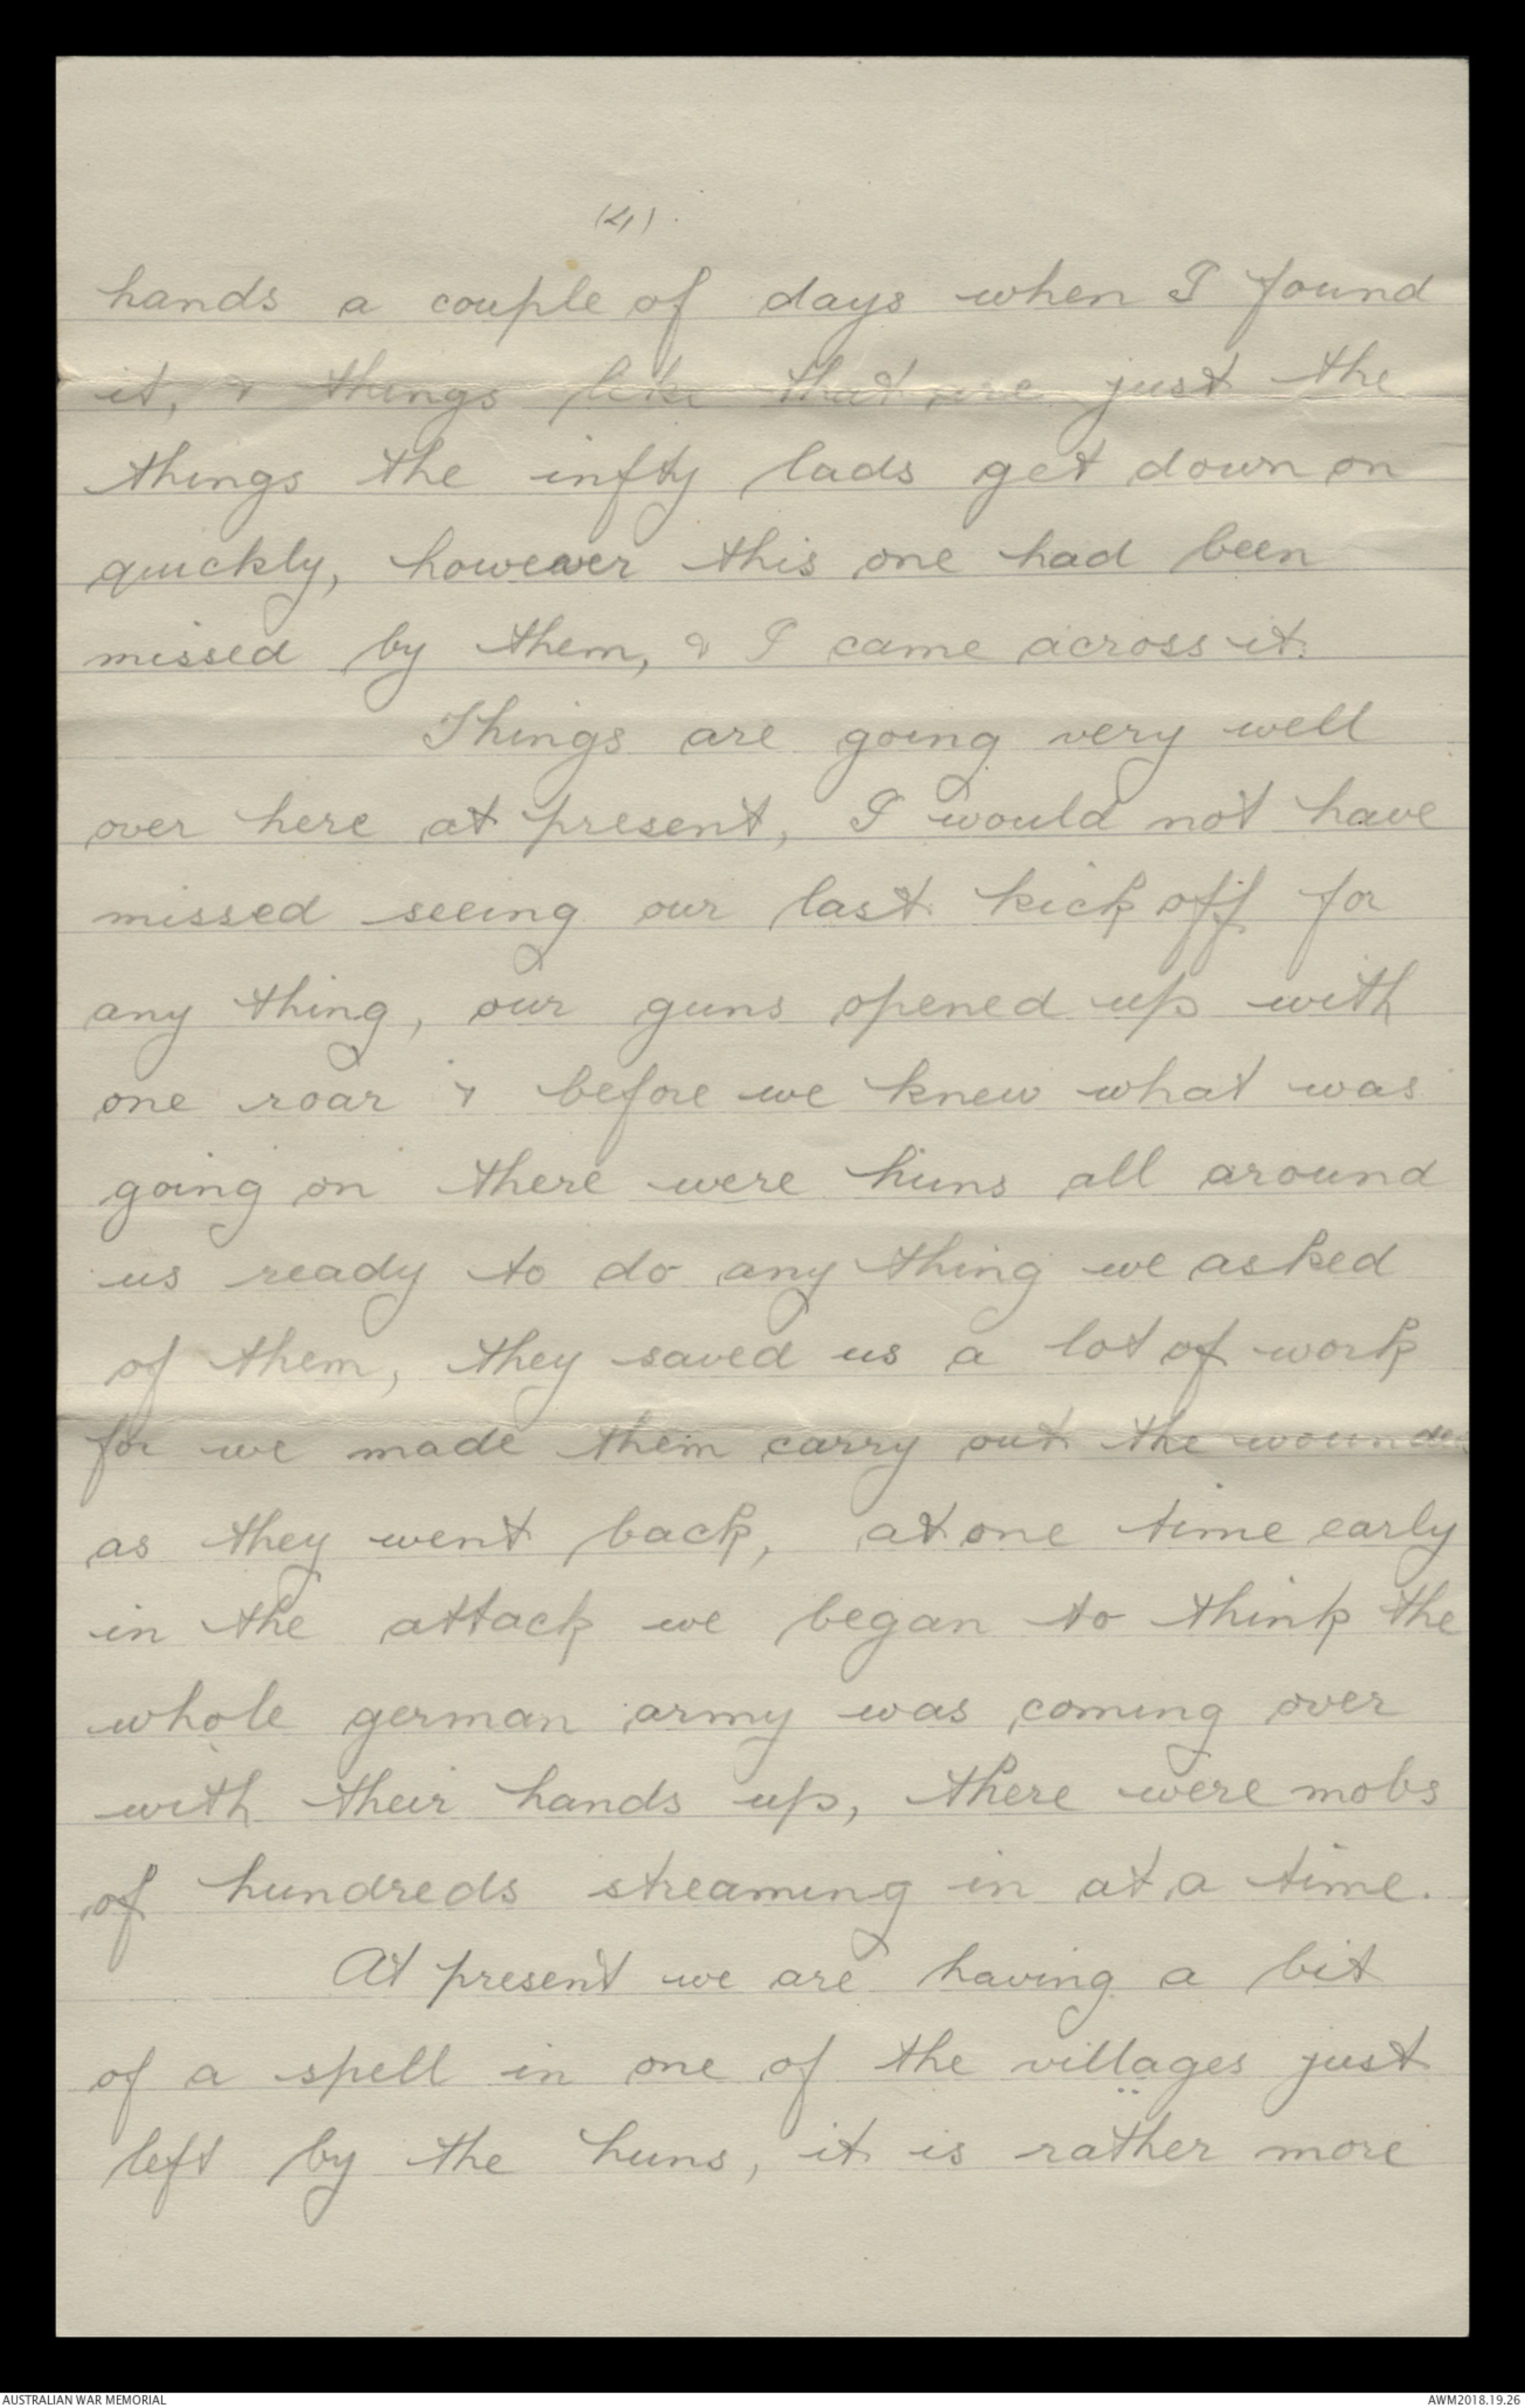 (4).
hands a couple of days when I found
it, & things like that are just the
things the infty lads get down on
quickly, however this one had been
missed by them, & I came across it.
Things are going very well
over here at present, I would not have
missed seeing our last kick off for
any thing, our guns opened up with
one roar & before we knew what was
going on there were huns all around
us ready to do any thing we asked
of them, they saved us a lot of work
for we made them carry out the wounded
as they went back, at one time early
in the attack we began to think the
whole german army was coming over
with their hands up, there were mobs
of hundreds streaming in at a time.
At present we are having a bit
of a spell in one of the villages just
left by the huns, it is rather more
AUSTRALIAN WAR MEMORIAL
AWM2018.19.26